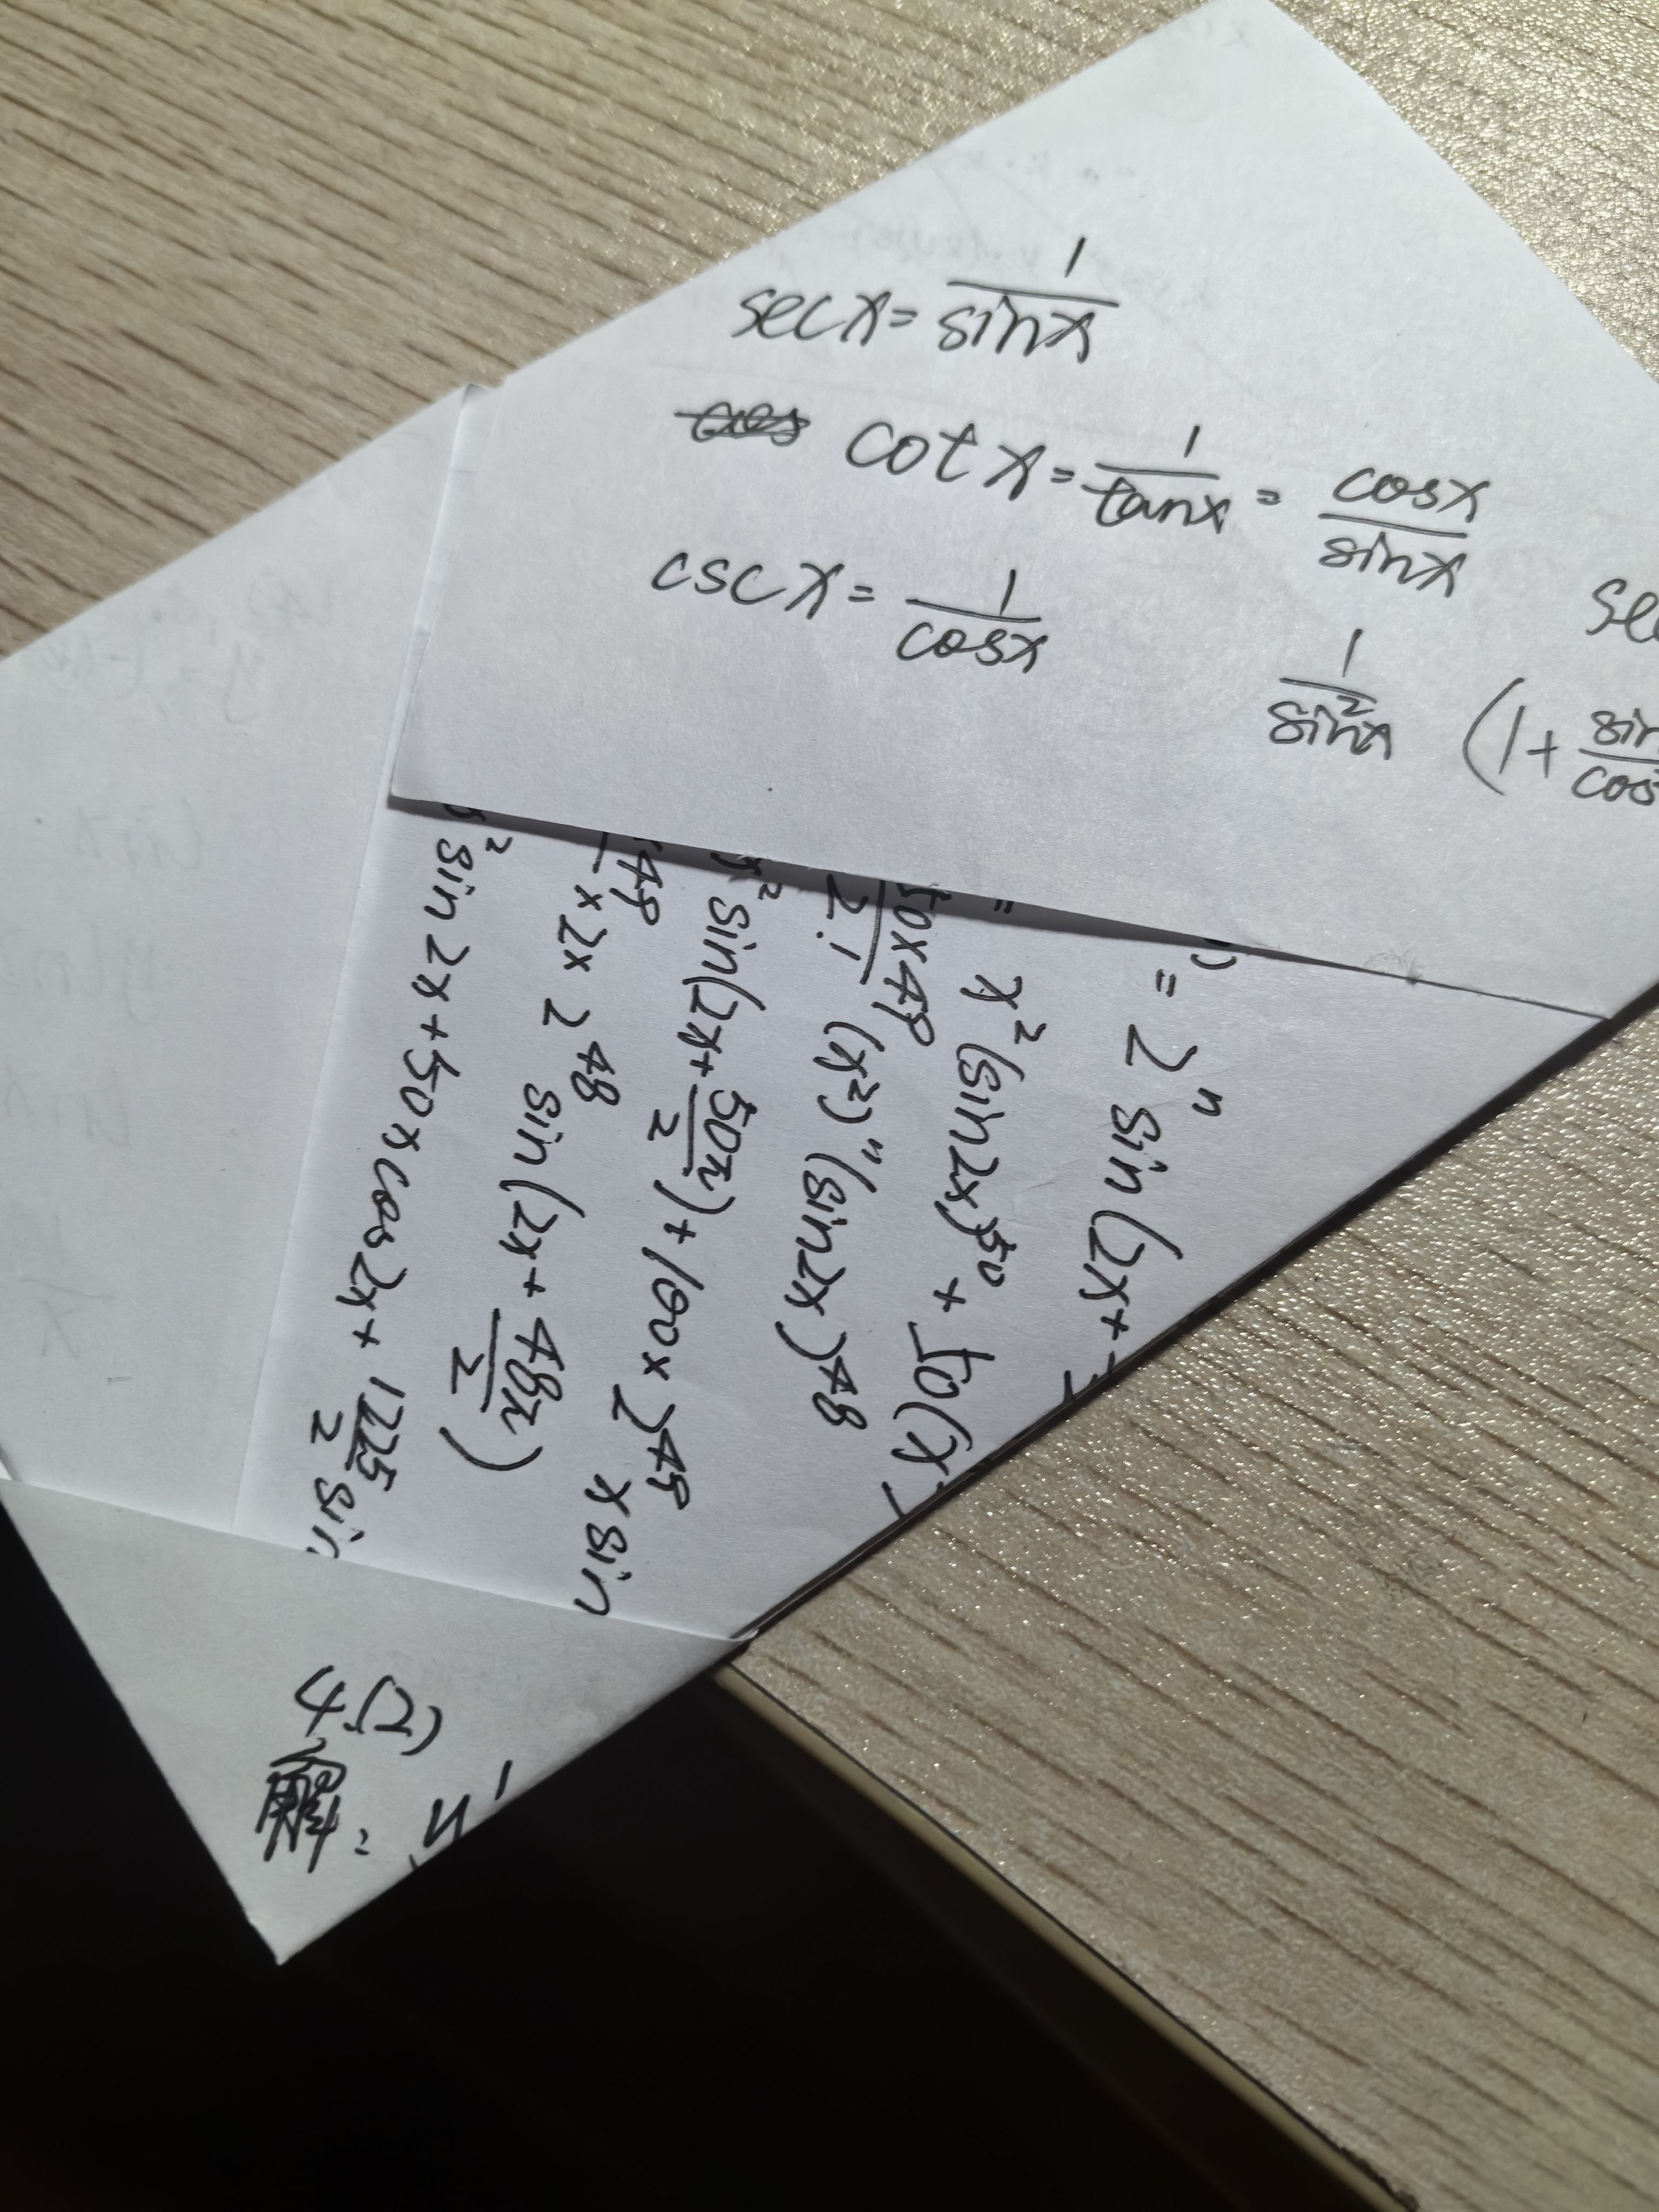 secx = 1/sinx
cotx = 1/tanx = cosx/sinx
cscx = 1/cosx
1/sin²x (1 + sin/cos
) = 2ⁿ sin(2x +
= x²(sin2x)⁵⁰ + 50(x
50×49/2! (x²)"(sin2x)⁴⁸
x² sin(2x + 50π/2) + 100×2⁴⁹ x sin
49 × 2 × 2⁴⁸ sin(2x + 48π/2)
² sin2x + 50xcos2x + 1225/2 sin
(2)
4
解: